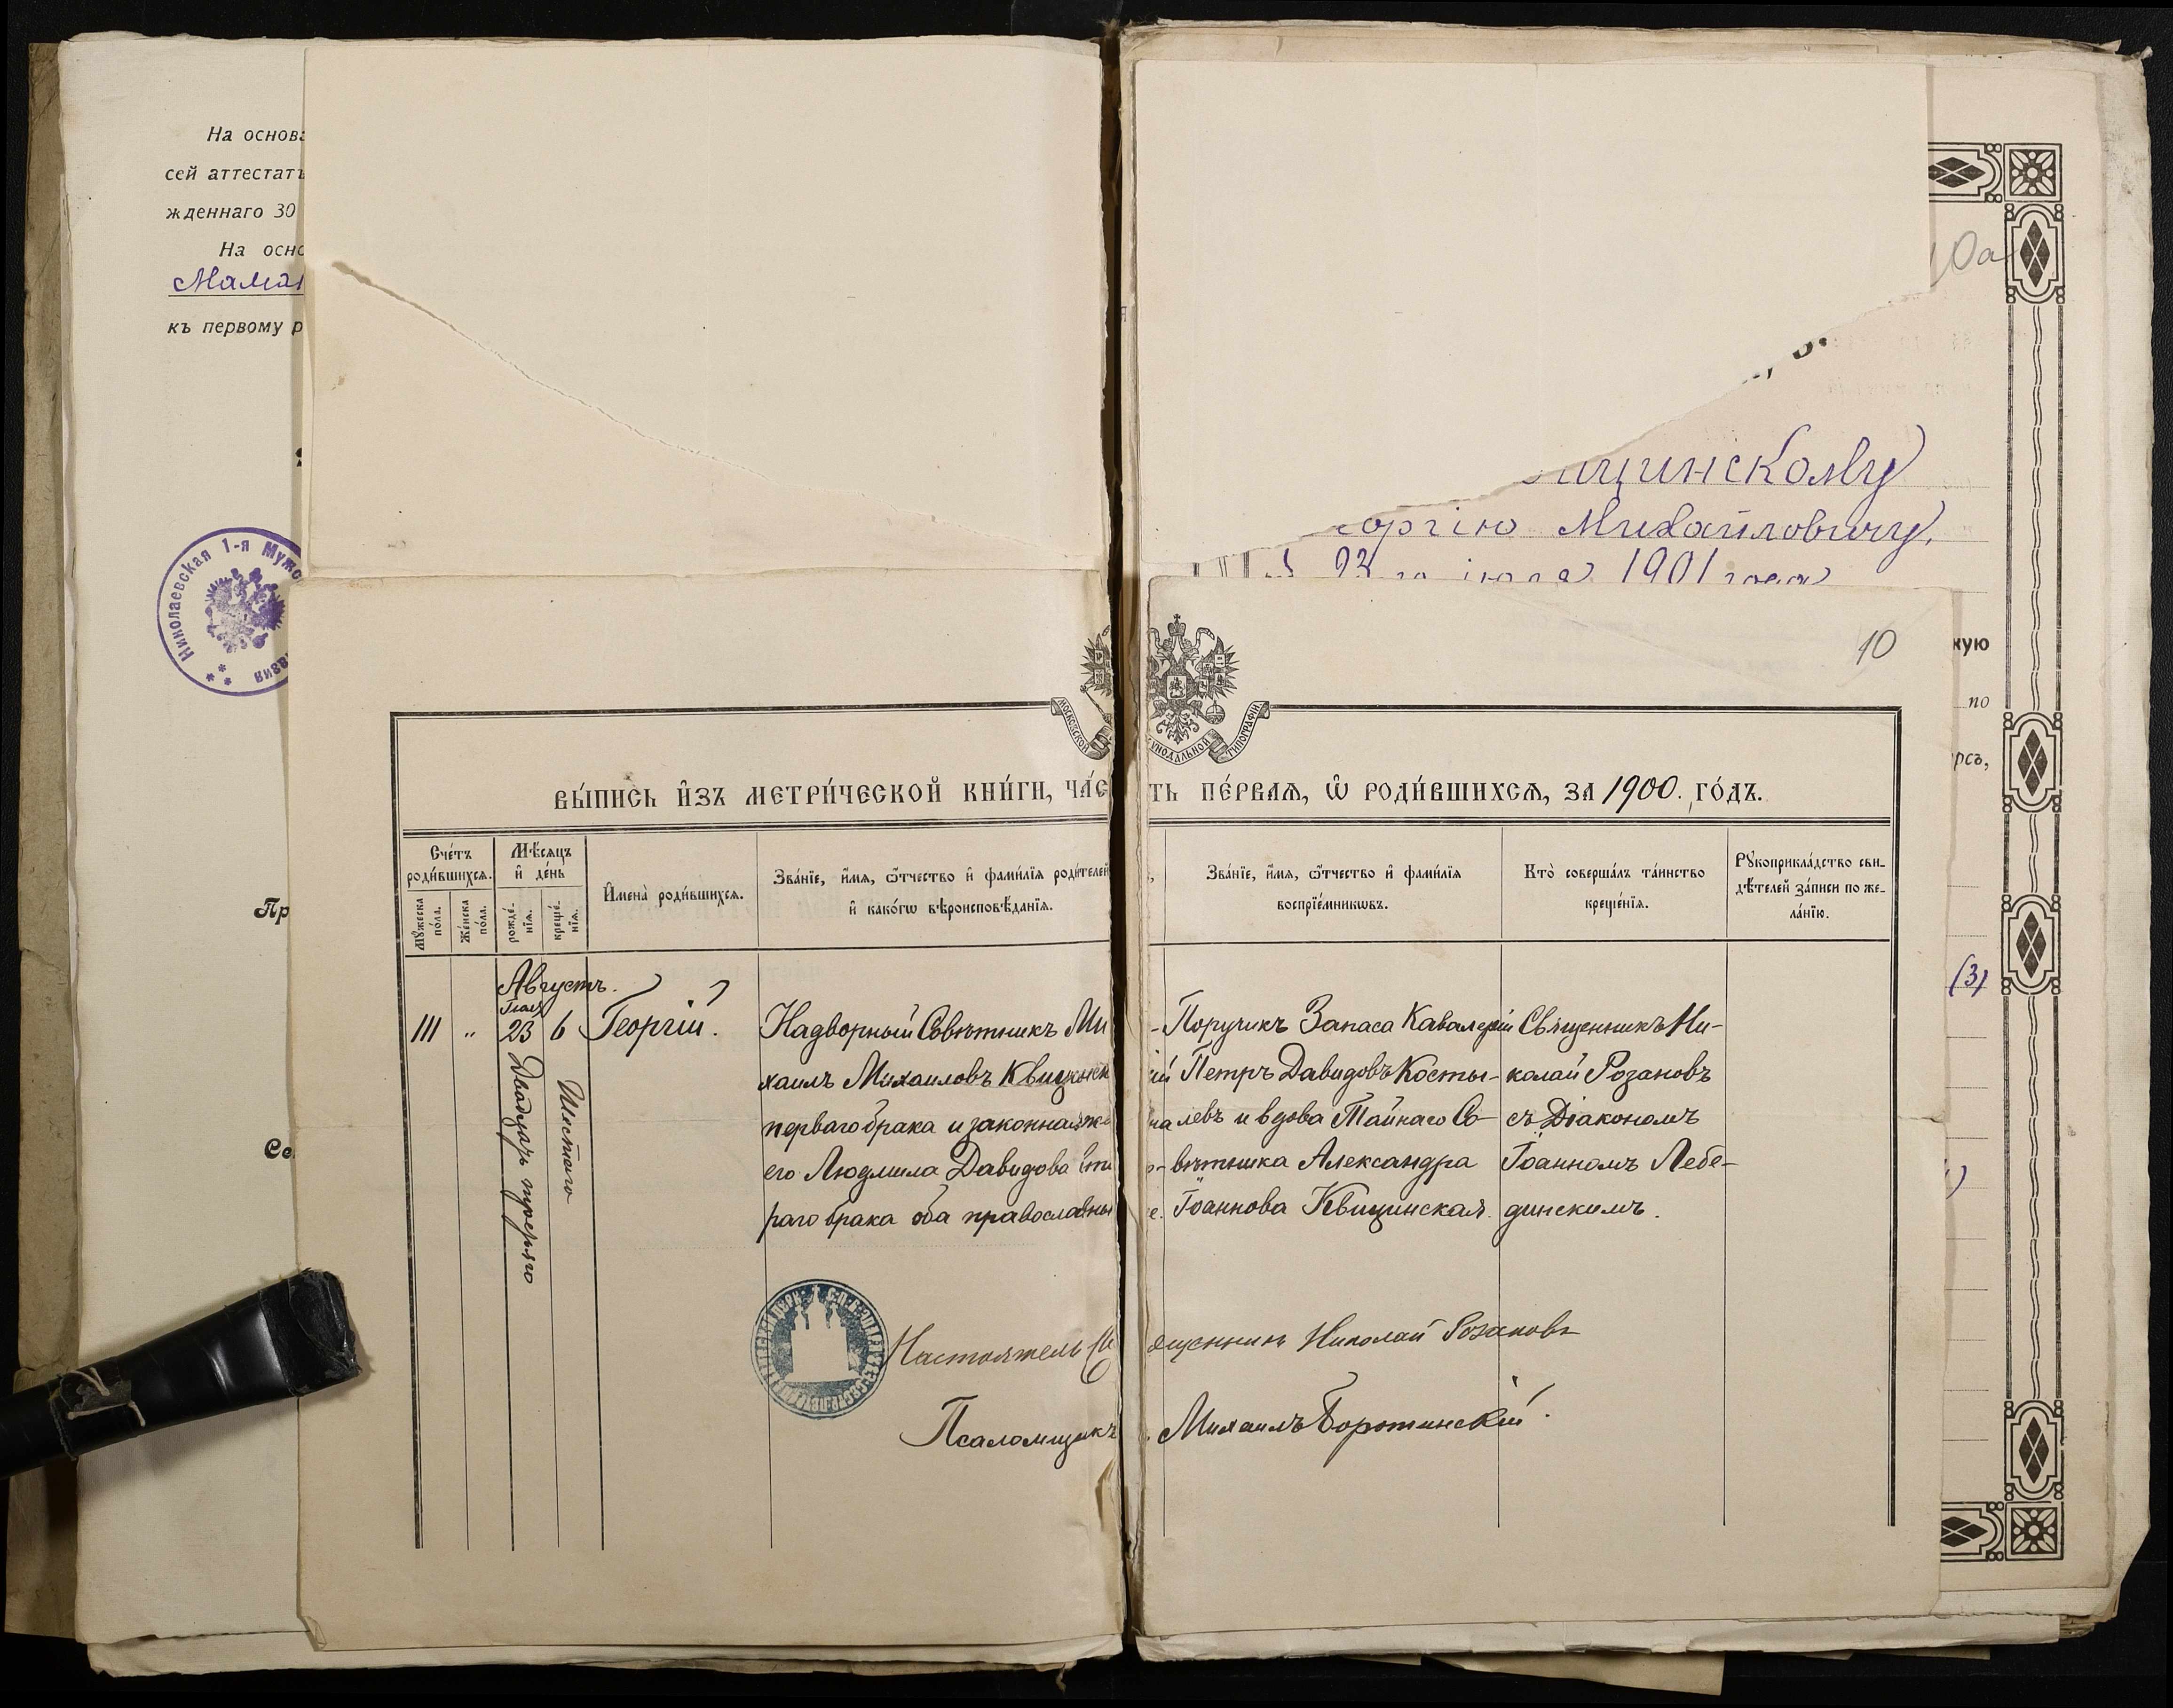 На основа
сей аттестатъ
жденнаго 30
На осно
Маман
къ первому р
Николаевская 1-я Мужс
Пр
Се
10а
ицинскому
оргію Михайловичу,
23 го іюля 1901 года
10
кую
по
рсъ,
(3)
МОСКОВСКОЙ СУНОДАЛЬНОЙ ТИПОГРАФІИ
ВЫ́ПИСЬ И҆ЗЪ МЕТРИ́ЧЕСКОЙ КНИ́ГИ, ЧА́СТЬ ПЕ́РВАѦ, Ѽ РОДИ́ВШИХСѦ, ЗА 1900. ГО́ДЪ.
Сче́тъ роди́вшихсѧ.
Мꙋ́жеска по́ла.
Же́нска по́ла.
Мѣ́сѧцъ и҆ де́нь
рожде́нїѧ.
креще́нїѧ.
И҆мена̀ роди́вшихсѧ.
Зва́нїе, и҆́мѧ, ѻ҆́тчество и҆ фами́лїѧ роди́телей,
и҆ како́гѡ вѣроисповѣ́данїѧ.
Зва́нїе, и҆́мѧ, ѻ҆́тчество и҆ фами́лїѧ
воспрїе́мникѡвъ.
Кто̀ соверша́лъ та́инство
креще́нїѧ.
Рꙋкоприкла́дство сви-
дѣ́телей за́писи по же-
ла́нїю.
Августъ.
111 " 23 6 Георгій.
Двадцать третьяго
Шестого
Надворный Совѣтникъ Ми-
хаилъ Михаиловъ Квицинскій
перваго брака и законная жена
его Людмила Давидова вто-
раго брака оба православные.
Поручикъ Запаса Кавалеріи
Петръ Давидовъ Косты-
левъ и вдова Тайнаго Со-
вѣтника Александра
Іоаннова Квицинская.
Священникъ Ни-
колай Розановъ
съ Діакономъ
Іоанномъ Лебе-
динскимъ.
Настоятель Священникъ Николай Розановъ
Псаломщикъ Михаилъ Боротинскій.